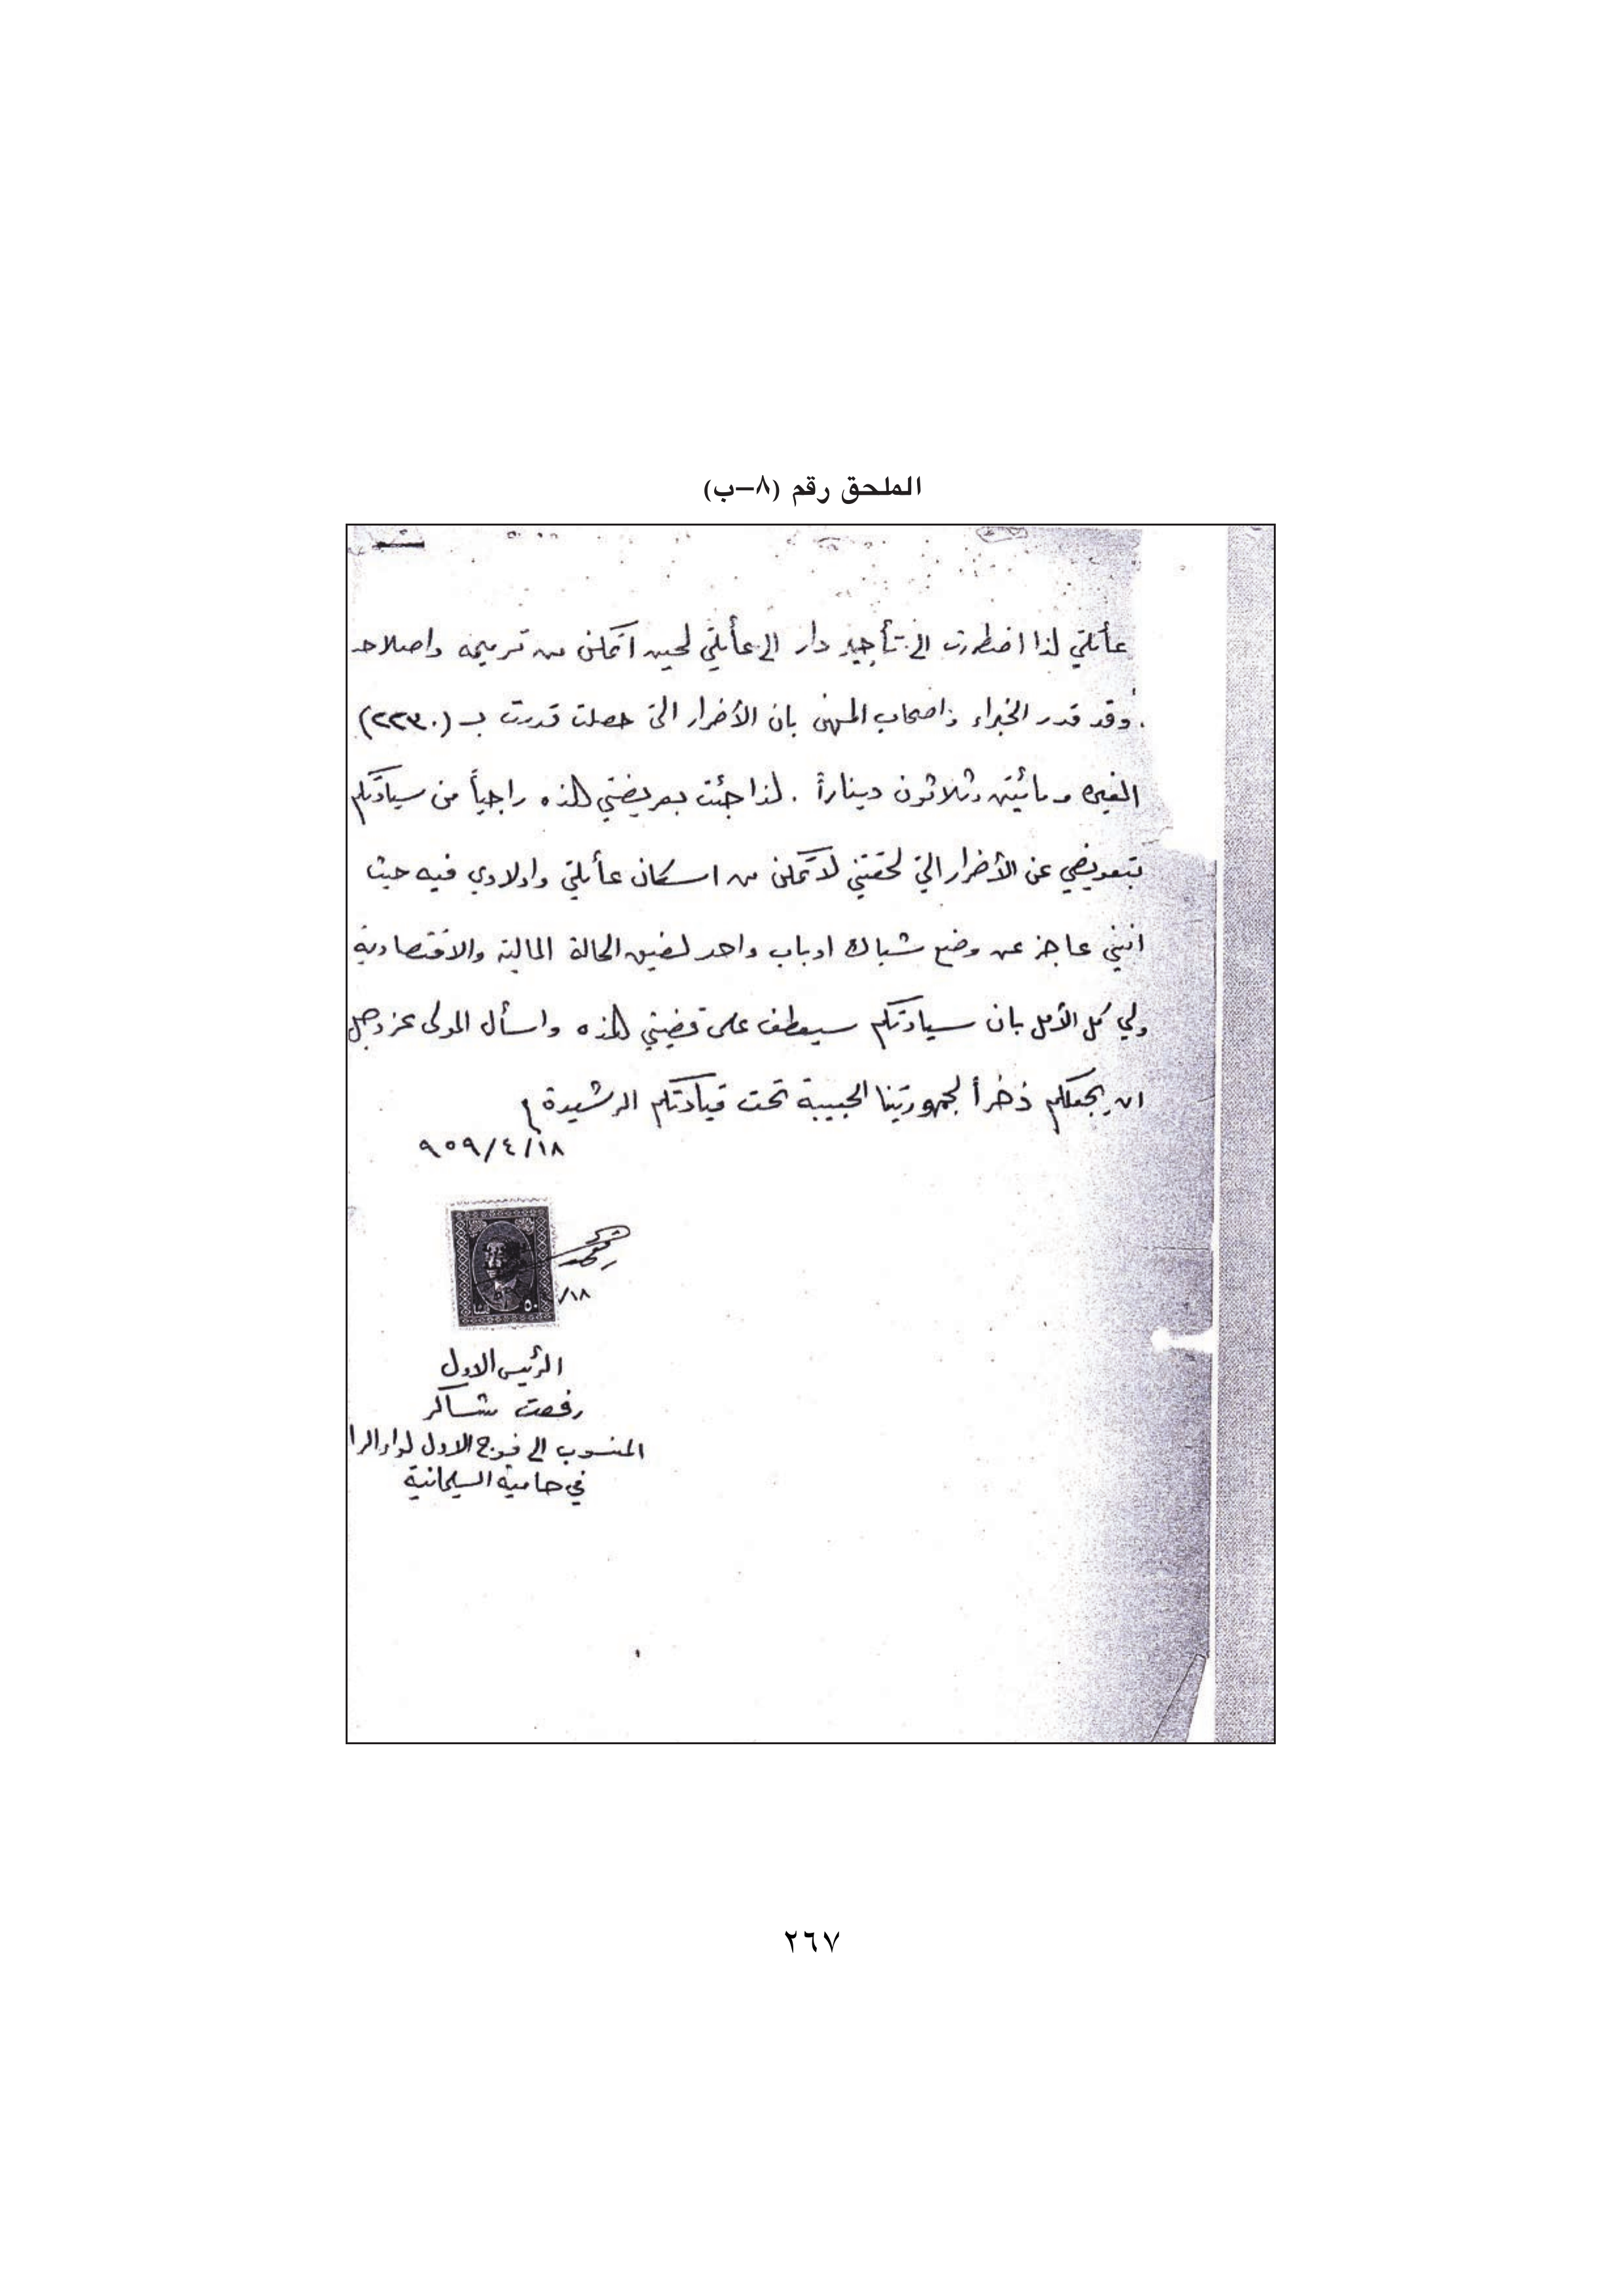 الملحق رقم (٨-ب)
عائلتي لذا اضطررت الى تأجير دار الى عائلتي لحين اتمكن من ترميمه واصلاحه
. وقد قدر الخبراء واصحاب المهن بان الأضرار التي حصلت قدرت بـ (٢٢٣٠)
الفين ومائتين وثلاثون ديناراً . لذا جئت بعريضتي هذه راجياً من سيادتكم
بتعويضي عن الأضرار التي لحقتني لأتمكن من اسكان عائلتي واولادي فيه حيث
انني عاجز عن وضع شباك او باب واحد لضيق الحالة المالية والاقتصادية
ولي كل الأمل بان سيادتكم سيعطف على قضيتي هذه واسأل المولى عز وجل
ان يجعلكم ذخراً لجمهوريتنا الحبيبة تحت قيادتكم الرشيدة
٩٥٩/٤/١٨
/١٨
٥٠ فلسا
الرئيس الاول
رفعت شاكر
المنسوب الى فوج الاول لواء الرا
في حامية السليمانية
٢٦٧